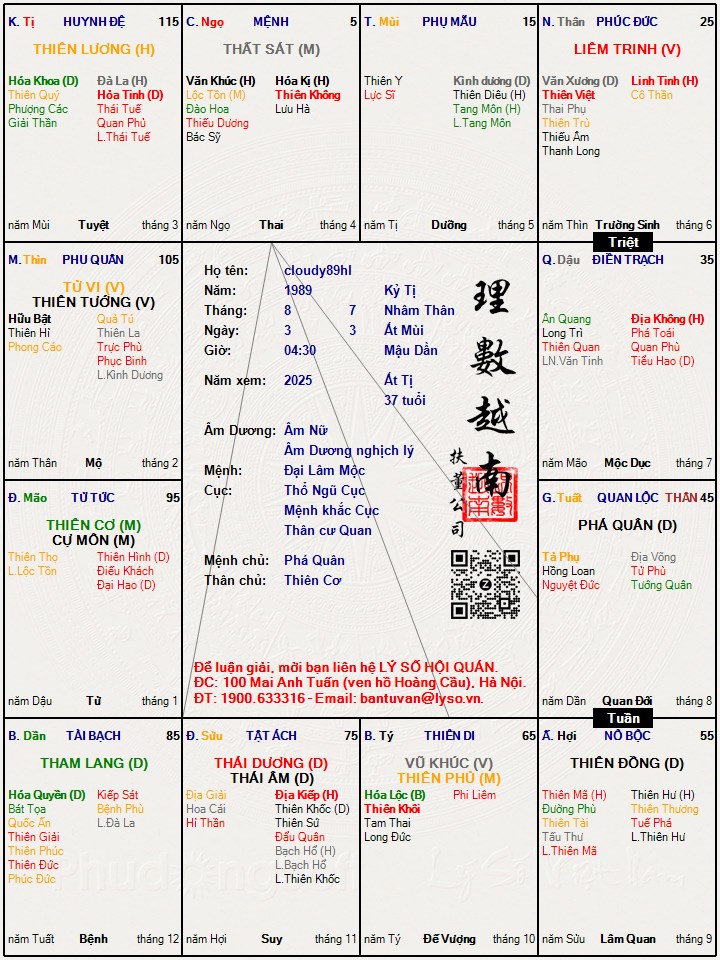 K. Tị HUYNH ĐỆ 115
THIÊN LƯƠNG (H)
Hóa Khoa (D) Đà La (H)
Thiên Quý Hỏa Tinh (D)
Phượng Các Thái Tuế
Giải Thần Quan Phủ
L.Thái Tuế
năm Mùi Tuyệt tháng 3
C. Ngọ MỆNH 5
THẤT SÁT (M)
Văn Khúc (H) Hóa Kị (H)
Lộc Tồn (M) Thiên Không
Đào Hoa Lưu Hà
Thiếu Dương
Bác Sỹ
năm Ngọ Thai tháng 4
T. Mùi PHỤ MẪU 15
Thiên Y Kình dương (D)
Lực Sĩ Thiên Diêu (H)
Tang Môn (H)
L.Tang Môn
năm Tị Dưỡng tháng 5
N. Thân PHÚC ĐỨC 25
LIÊM TRINH (V)
Văn Xương (D) Linh Tinh (H)
Thiên Việt Cô Thần
Thai Phụ
Thiên Trù
Thiếu Âm
Thanh Long
năm Thìn Trường Sinh tháng 6
Triệt
M. Thìn PHU QUÂN 105
TỬ VI (V)
THIÊN TƯỚNG (V)
Hữu Bật Quả Tú
Thiên Hỉ Thiên La
Phong Cáo Trực Phù
Phục Binh
L.Kình Dương
năm Thân Mộ tháng 2
Họ tên: cloudy89hl
Năm: 1989 Kỷ Tị
Tháng: 8 7 Nhâm Thân
Ngày: 3 3 Ất Mùi
Giờ: 04:30 Mậu Dần
Năm xem: 2025 Ất Tị
37 tuổi
Âm Dương: Âm Nữ
Âm Dương nghịch lý
Mệnh: Đại Lâm Mộc
Cục: Thổ Ngũ Cục
Mệnh khắc Cục
Thân cư Quan
Mệnh chủ: Phá Quân
Thân chủ: Thiên Cơ
理數越南
扶董公司
Để luận giải, mời bạn liên hệ LÝ SỐ HỘI QUÁN.
ĐC: 100 Mai Anh Tuấn (ven hồ Hoàng Cầu), Hà Nội.
ĐT: 1900.633316 - Email: bantuvan@lyso.vn.
Q. Dậu ĐIỀN TRẠCH 35
Ân Quang Địa Không (H)
Long Trì Phá Toái
Thiên Quan Quan Phù
LN.Văn Tinh Tiểu Hao (D)
năm Mão Mộc Dục tháng 7
Đ. Mão TỬ TỨC 95
THIÊN CƠ (M)
CỰ MÔN (M)
Thiên Thọ Thiên Hình (D)
L.Lộc Tồn Điếu Khách
Đại Hao (D)
năm Dậu Tử tháng 1
G. Tuất QUAN LỘC THÂN 45
PHÁ QUÂN (D)
Tả Phụ Địa Võng
Hồng Loan Tử Phù
Nguyệt Đức Tướng Quân
năm Dần Quan Đới tháng 8
Tuần
B. Dần TÀI BẠCH 85
THAM LANG (D)
Hóa Quyền (D) Kiếp Sát
Bát Tọa Bệnh Phù
Quốc Ấn L.Đà La
Thiên Giải
Thiên Phúc
Thiên Đức
Phúc Đức
năm Tuất Bệnh tháng 12
Đ. Sửu TẬT ÁCH 75
THÁI DƯƠNG (D)
THÁI ÂM (D)
Địa Giải Địa Kiếp (H)
Hoa Cái Thiên Khốc (D)
Hỉ Thần Thiên Sứ
Đẩu Quân
Bạch Hổ (H)
L.Bạch Hổ
L.Thiên Khốc
năm Hợi Suy tháng 11
B. Tý THIÊN DI 65
VŨ KHÚC (V)
THIÊN PHỦ (M)
Hóa Lộc (B) Phi Liêm
Thiên Khôi
Tam Thai
Long Đức
năm Tý Đế Vượng tháng 10
Ấ. Hợi NÔ BỘC 55
THIÊN ĐỒNG (D)
Thiên Mã (H) Thiên Hư (H)
Đường Phù Thiên Thương
Thiên Tài Tuế Phá
Tấu Thư L.Thiên Hư
L.Thiên Mã
năm Sửu Lâm Quan tháng 9